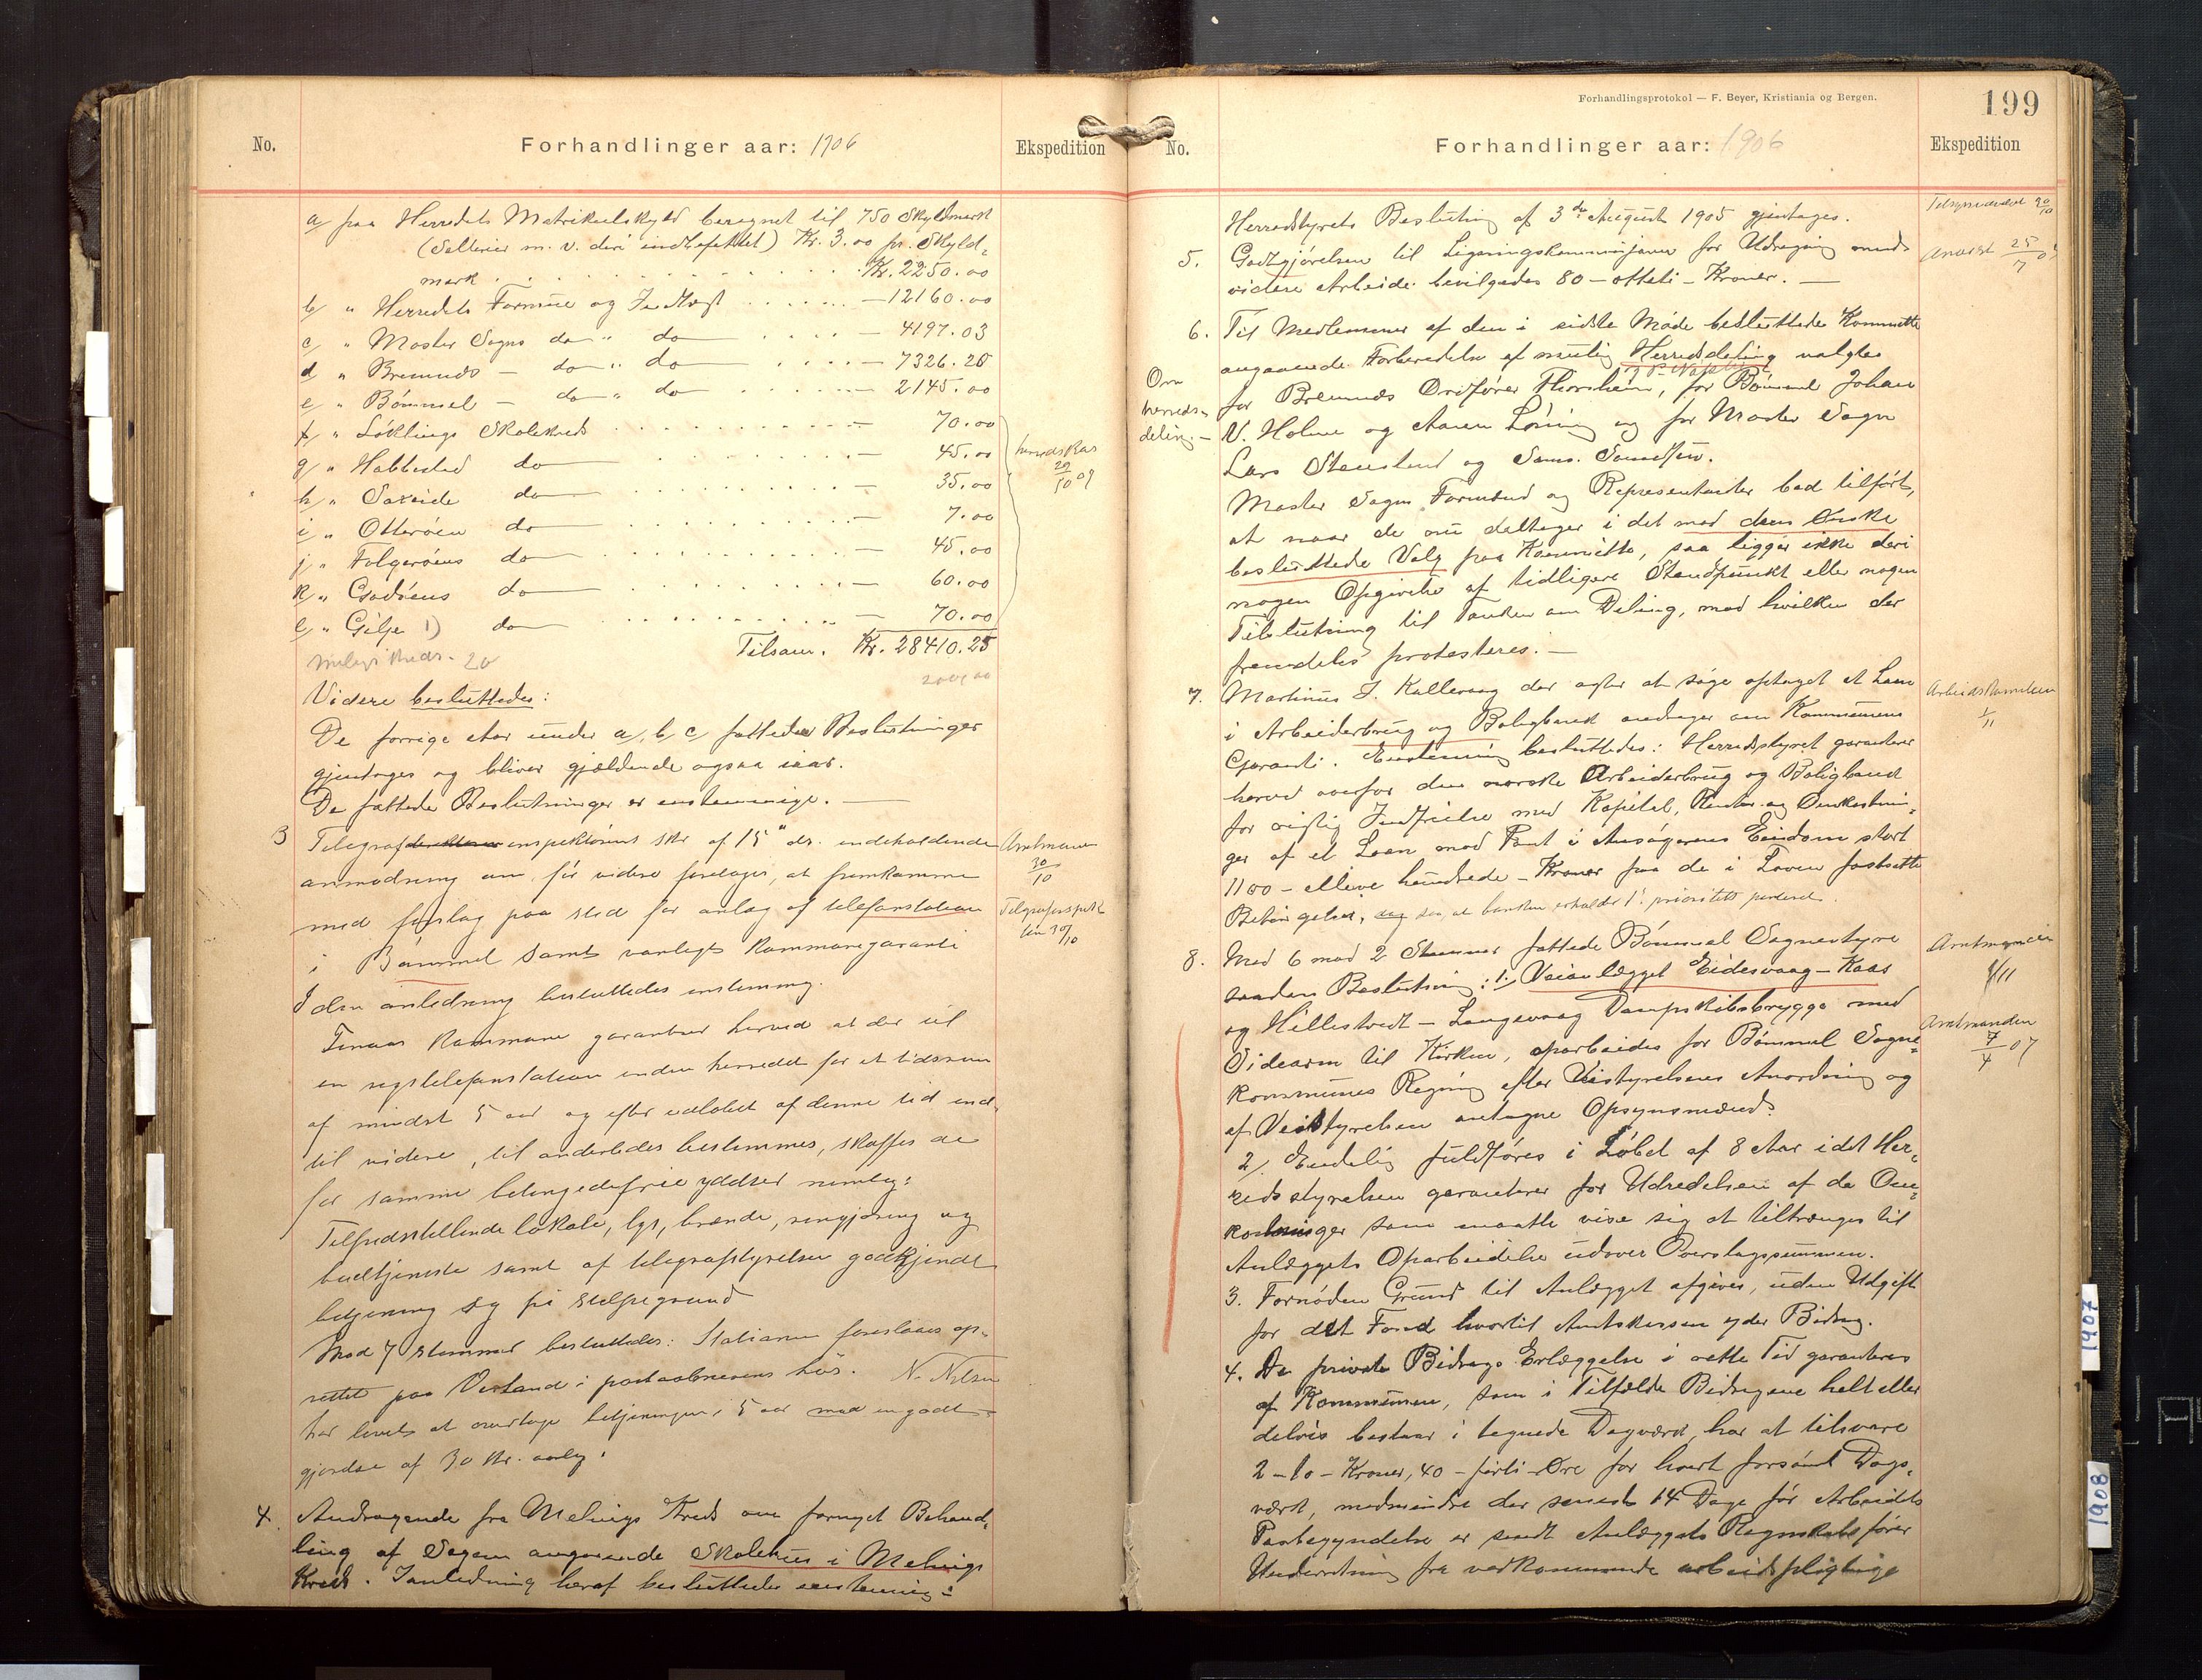 No.
Forhandlinger aar: 1906
Ekspedition
a/ paa Herredets Matrikulskyld beregnet til 750 Skyldmark
(Salterier m. v. deri indbefattet) Kr. 3.00 pr. Skyld-
mark . . . Kr. 2250.00
b/ " Herredets Formue og Indtægt . . . — 12160.00
c/ " Moster Sogns do " do . . . — 4197.03
d/ " Bremnes — do " do . . . — 7326.25
e/ " Bømmel — do " do . . . — 2145.00
f/ " Løklings Skolekreds . . . — 70.00
g/ " Habbestad do . . . — 45.00
h/ " Sakseide do . . . — 35.00
i/ " Otterøen do . . . — 7.00
j/ " Folgerøens do . . . — 45.00
k/ " Goddøens do . . . — 60.00
l/ " Gilje 1) do . . . — 70.00
herredskas
29/10 09
Tilsam. Kr. 28410.25
Melings Kreds. 20
Videre besluttedes:
De forrige Aar under a/, b/, c/ fattede Beslutninger
gjentages og bliver gjældende ogsaa iaar.
De fattede Beslutninger er enstemmige. —
3 Telegrafinspektørens skr. af 15 ds. indeholdende
anmodning om, før videre foretages, at fremkomme
med forslag paa sted for anlæg af telefonstation
i Bømmel samt vanlige kommunegaranti
I den anledning besluttedes enstemmig.
Amtmanen
30/10
Telgrafinspek
tør 30/10
Finaas kommune garanterer herved at der til
en rigstelefonstation inden herredet for et tidsrum
af mindst 5 aar og efter udløbet af denne tid ind-
til videre, til anderledes bestemmes, skaffes de
for samme betingedefrie ydelser nemlig:
Tilfredsstillende lokale, lys, brænde, rengjøring og
budtjeneste samt af telegrafstyrelsen godkjendt
betjening
Mod 7 stemmer besluttedes: Stationen foreslaaes op-
rettet paa Vestland i postaabnerens hus. N. Nilsen
har lovet at overtage betjeningen i 5 aar mod en godt-
gjørelse af 30 Kr. aarlig.
4. Andragende fra Melings Kreds om fornyet Behand-
ling af Sagen angaaende Skolehus i Melings
Kreds. I anledning heraf besluttedes enstemmig:
Forhandlingsprotokol — F. Beyer, Kristiania og Bergen.
199
No.
Forhandlinger aar: 1906
Ekspedition
Herredstyrets Beslutning af 3die August 1905 gjentages.
5. Godtgjørelsen til Ligningskommisjonen for Udregning med
videre Arbeide bevilgedes 80 — otteti — Kroner. —
anvist 25/7
6. Til Medlemmer af den i sidste Møde besluttede Komitte
angaaende Forberedelse af mulig Herredsdeling valgtes
Om
herreds-
deling. —
for Bremnes Ordfører Thorsheim, for Bømmel Johan
V. Holme og Aamen Løning og for Moster Sogn
Lars Stensland og Sams. Samsson.
Moster Sogns Formænd og Repræsentanter bad tilført,
at naar de nu deltager i det mod deres Ønske
besluttede Valg paa Komitte, saa ligger ikke deri
nogen Opgivelse af tidligere Standpunkt eller nogen
Tilslutning til Tanken om Deling, mod hvilken der
fremdeles protesteres. —
7. Martinus J. Kallevaag der agter at søge optaget et Laan
i Arbeiderbrug og Boligbank andrager om Kommunens
Garanti. Enstemmig besluttedes: Herredstyret garanterer
herved overfor den norske Arbeiderbrug og Boligbank
for rigtig Indfrielse med Kapital, Renter og Omkostnin-
ger af et Laan mod Pant i Ansøgerens Eiendom stort
1100 — elleve hundrede — Kroner paa de i Loven fastsatte
Betingelser, saa at banken erholder 1ste prioritets panteret.
Arbeidsbanken
1/11
8. Med 6 mod 2 Stemmer fattede Bømmel Sognestyre
saadan Beslutning: 1. Veianlægget Eidesvaag — Kaas
og Hillestvedt — Langevaag Dampskibsbrygge med
Sidearm til Kirken, oparbeides for Bømmel Sogne-
kommunes Regning efter Veistyrelsens Anordning og
af Veistyrelsen antagne Opsynsmænd.
Amtmanden
1/11
Amtmanden
7/4 07
2/. Endelig fuldføres i Løbet af 8 Aar idet Her-
redsstyrelsen garanterer for Udredelsen af de Om-
kostninger som maatte vise sig at tiltrænges til
Anlæggets Oparbeidelse udover Overslagssummen.
3. Fornøden Grund til Anlægget afgives, uden Udgift
for det Fond hvortil Amtskassen yder Bidrag.
4. De private Bidrags Erlæggelse i rette Tid garanteres
af Kommunen, som i Tilfælde Bidragene helt eller
delvis bestaar i tegnede Dagværk, har at tilsvare
2 — to — Kroner, 40 — førti — Øre for hvert forsømt Dags-
værk, medmindre der senest 14 Dage før Arbeidets
Paabegyndelse er sendt Anlæggets Regnskabsfører
Underretning fra vedkommende arbeidspligtige
1907
1908